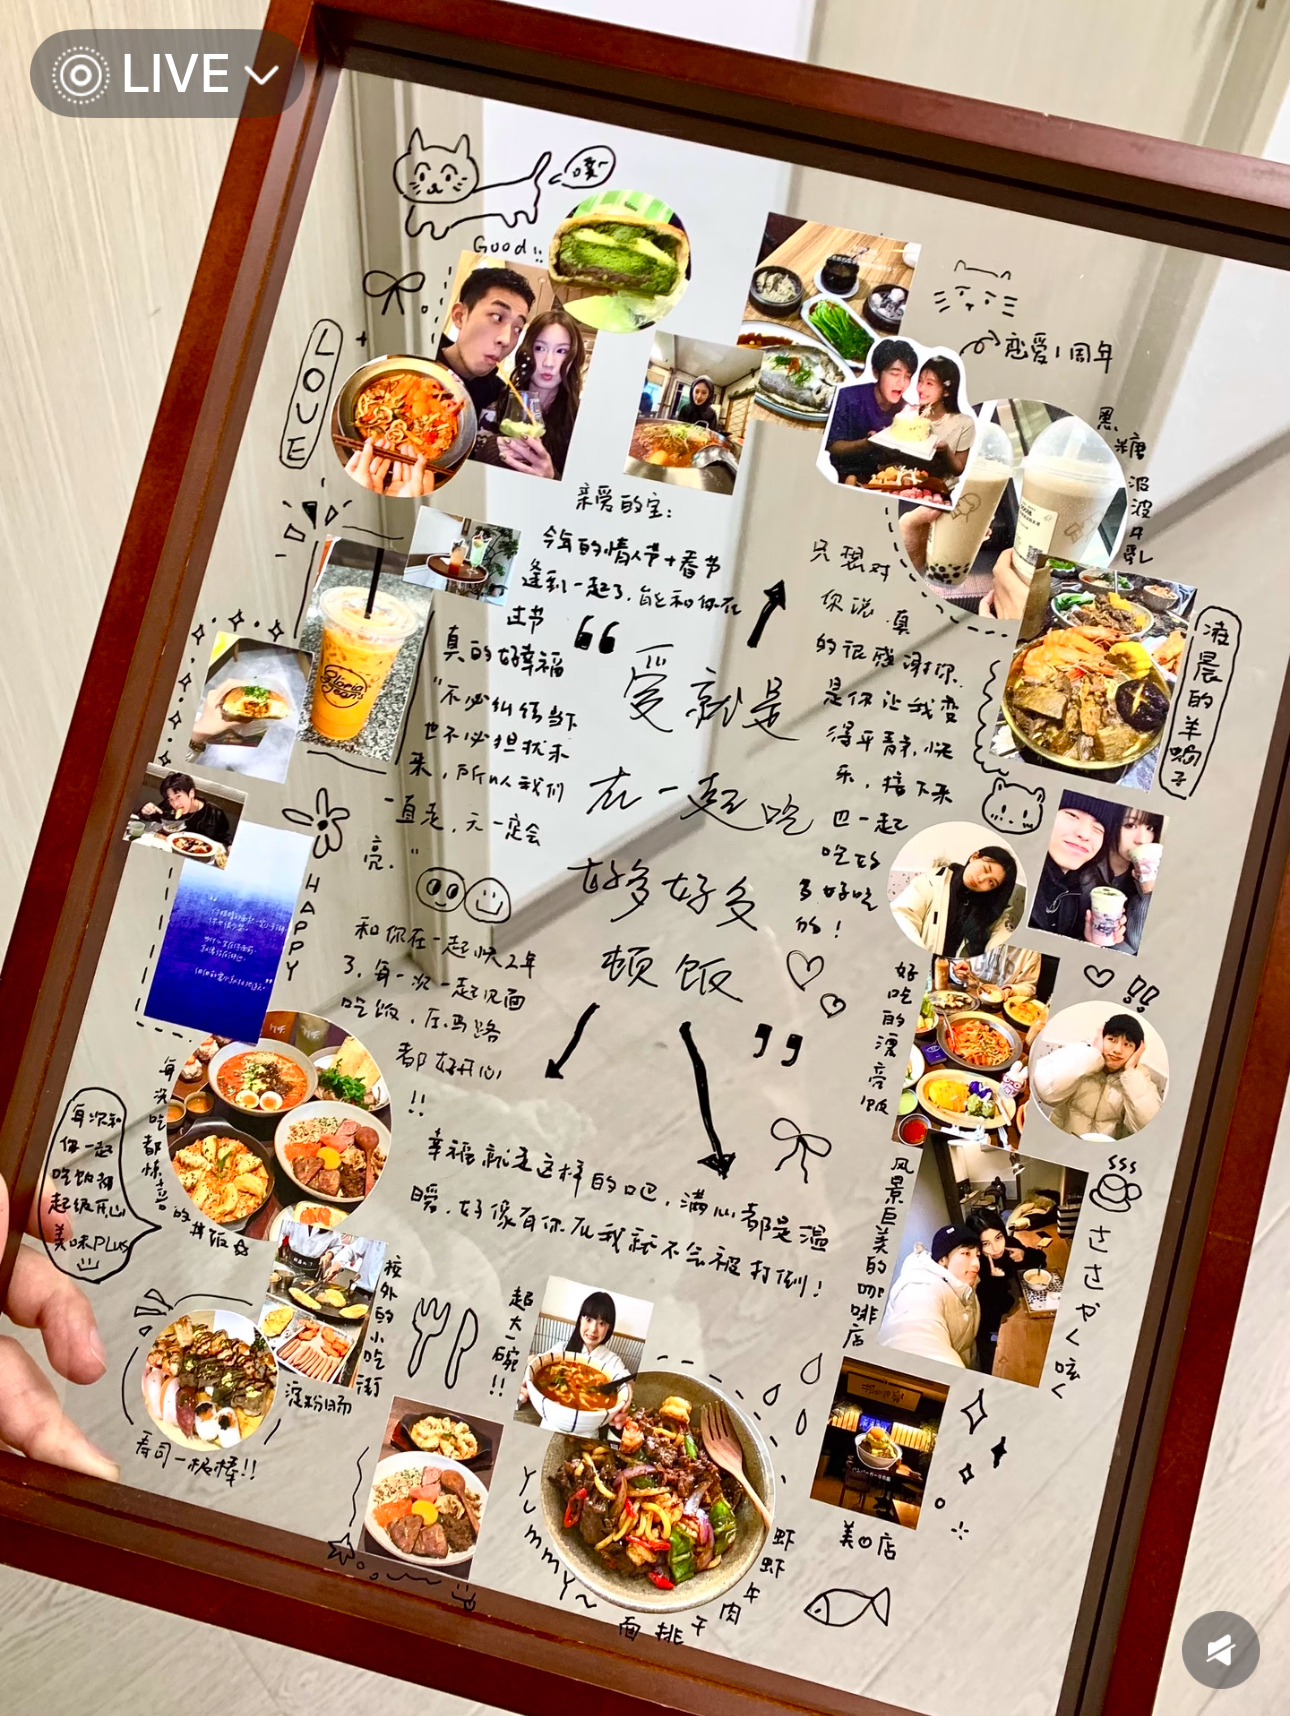 LIVE
噗~
Good!!
LOVE
恋爱1周年
黑糖波波牛乳
凌晨的羊蝎子
亲爱的宝:
今年的情人节+春节
逢到一起了,能和你在
过节
真的好幸福
"不必纠结当下
也不必担忧未
来,所以我们
一直走,天一定会
亮."
和你在一起快2年
了,每一次一起见面
吃饭,压马路
都好开心
!!
“
爱就是
在一起吃
好多好多
顿饭
”
只想对
你说,真
的很感谢你.
是你让我变
得平静,快
乐,接下来
也一起
吃好
多好吃
的!
幸福就是这样的吧,满心都是温
暖,好像有你在我就不会被打倒!
HAPPY
每次吃都惊喜的拌饭
每次和
你一起
吃饭都
超级开心
美味PLUS
寿司一极棒!!
校外的小吃街
淀粉肠
超大一碗!!
Yummy~
虾虾牛肉干挑面
美の店
好吃的漂亮饭
!!
风景巨美的咖啡店
Gloria Jean's